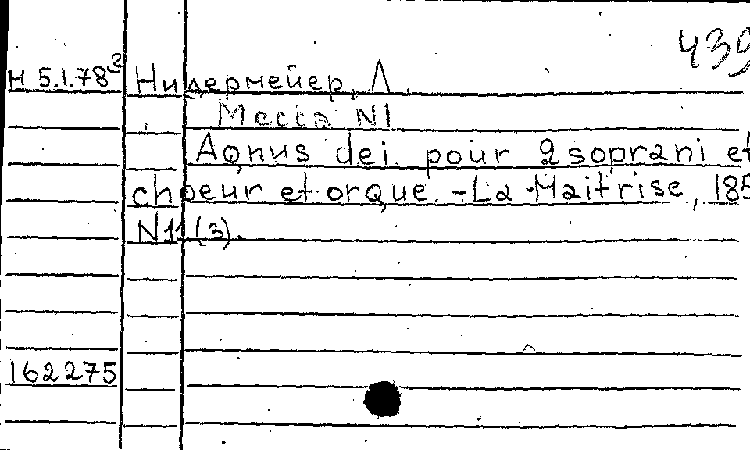 439
Н 5.1.78² Нидермейер, Л.
Месса N1
Agnus dei pour 2 soprani et
choeur et orgue. - La Maitrise, 185
N11(3).
162275